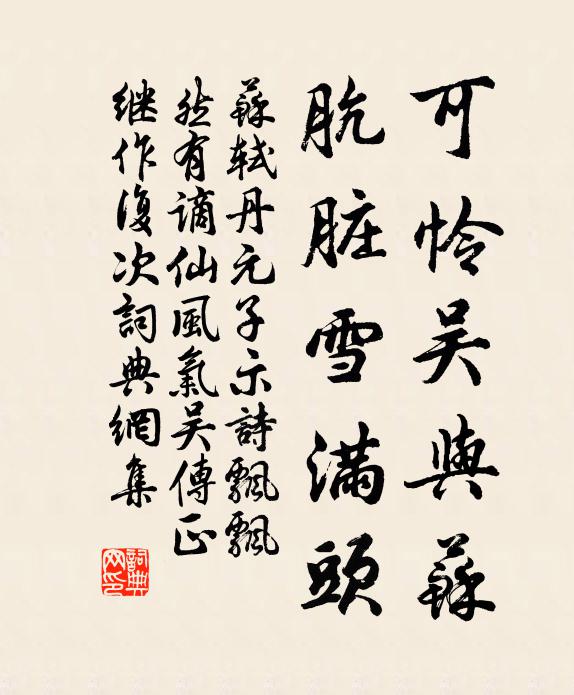 可怜吴與蘇
肮脏雪滿頭
蘇軾丹元子示詩飄飄
然有谪仙風氣吴傳正
继作復次詞典網集
詞典网印